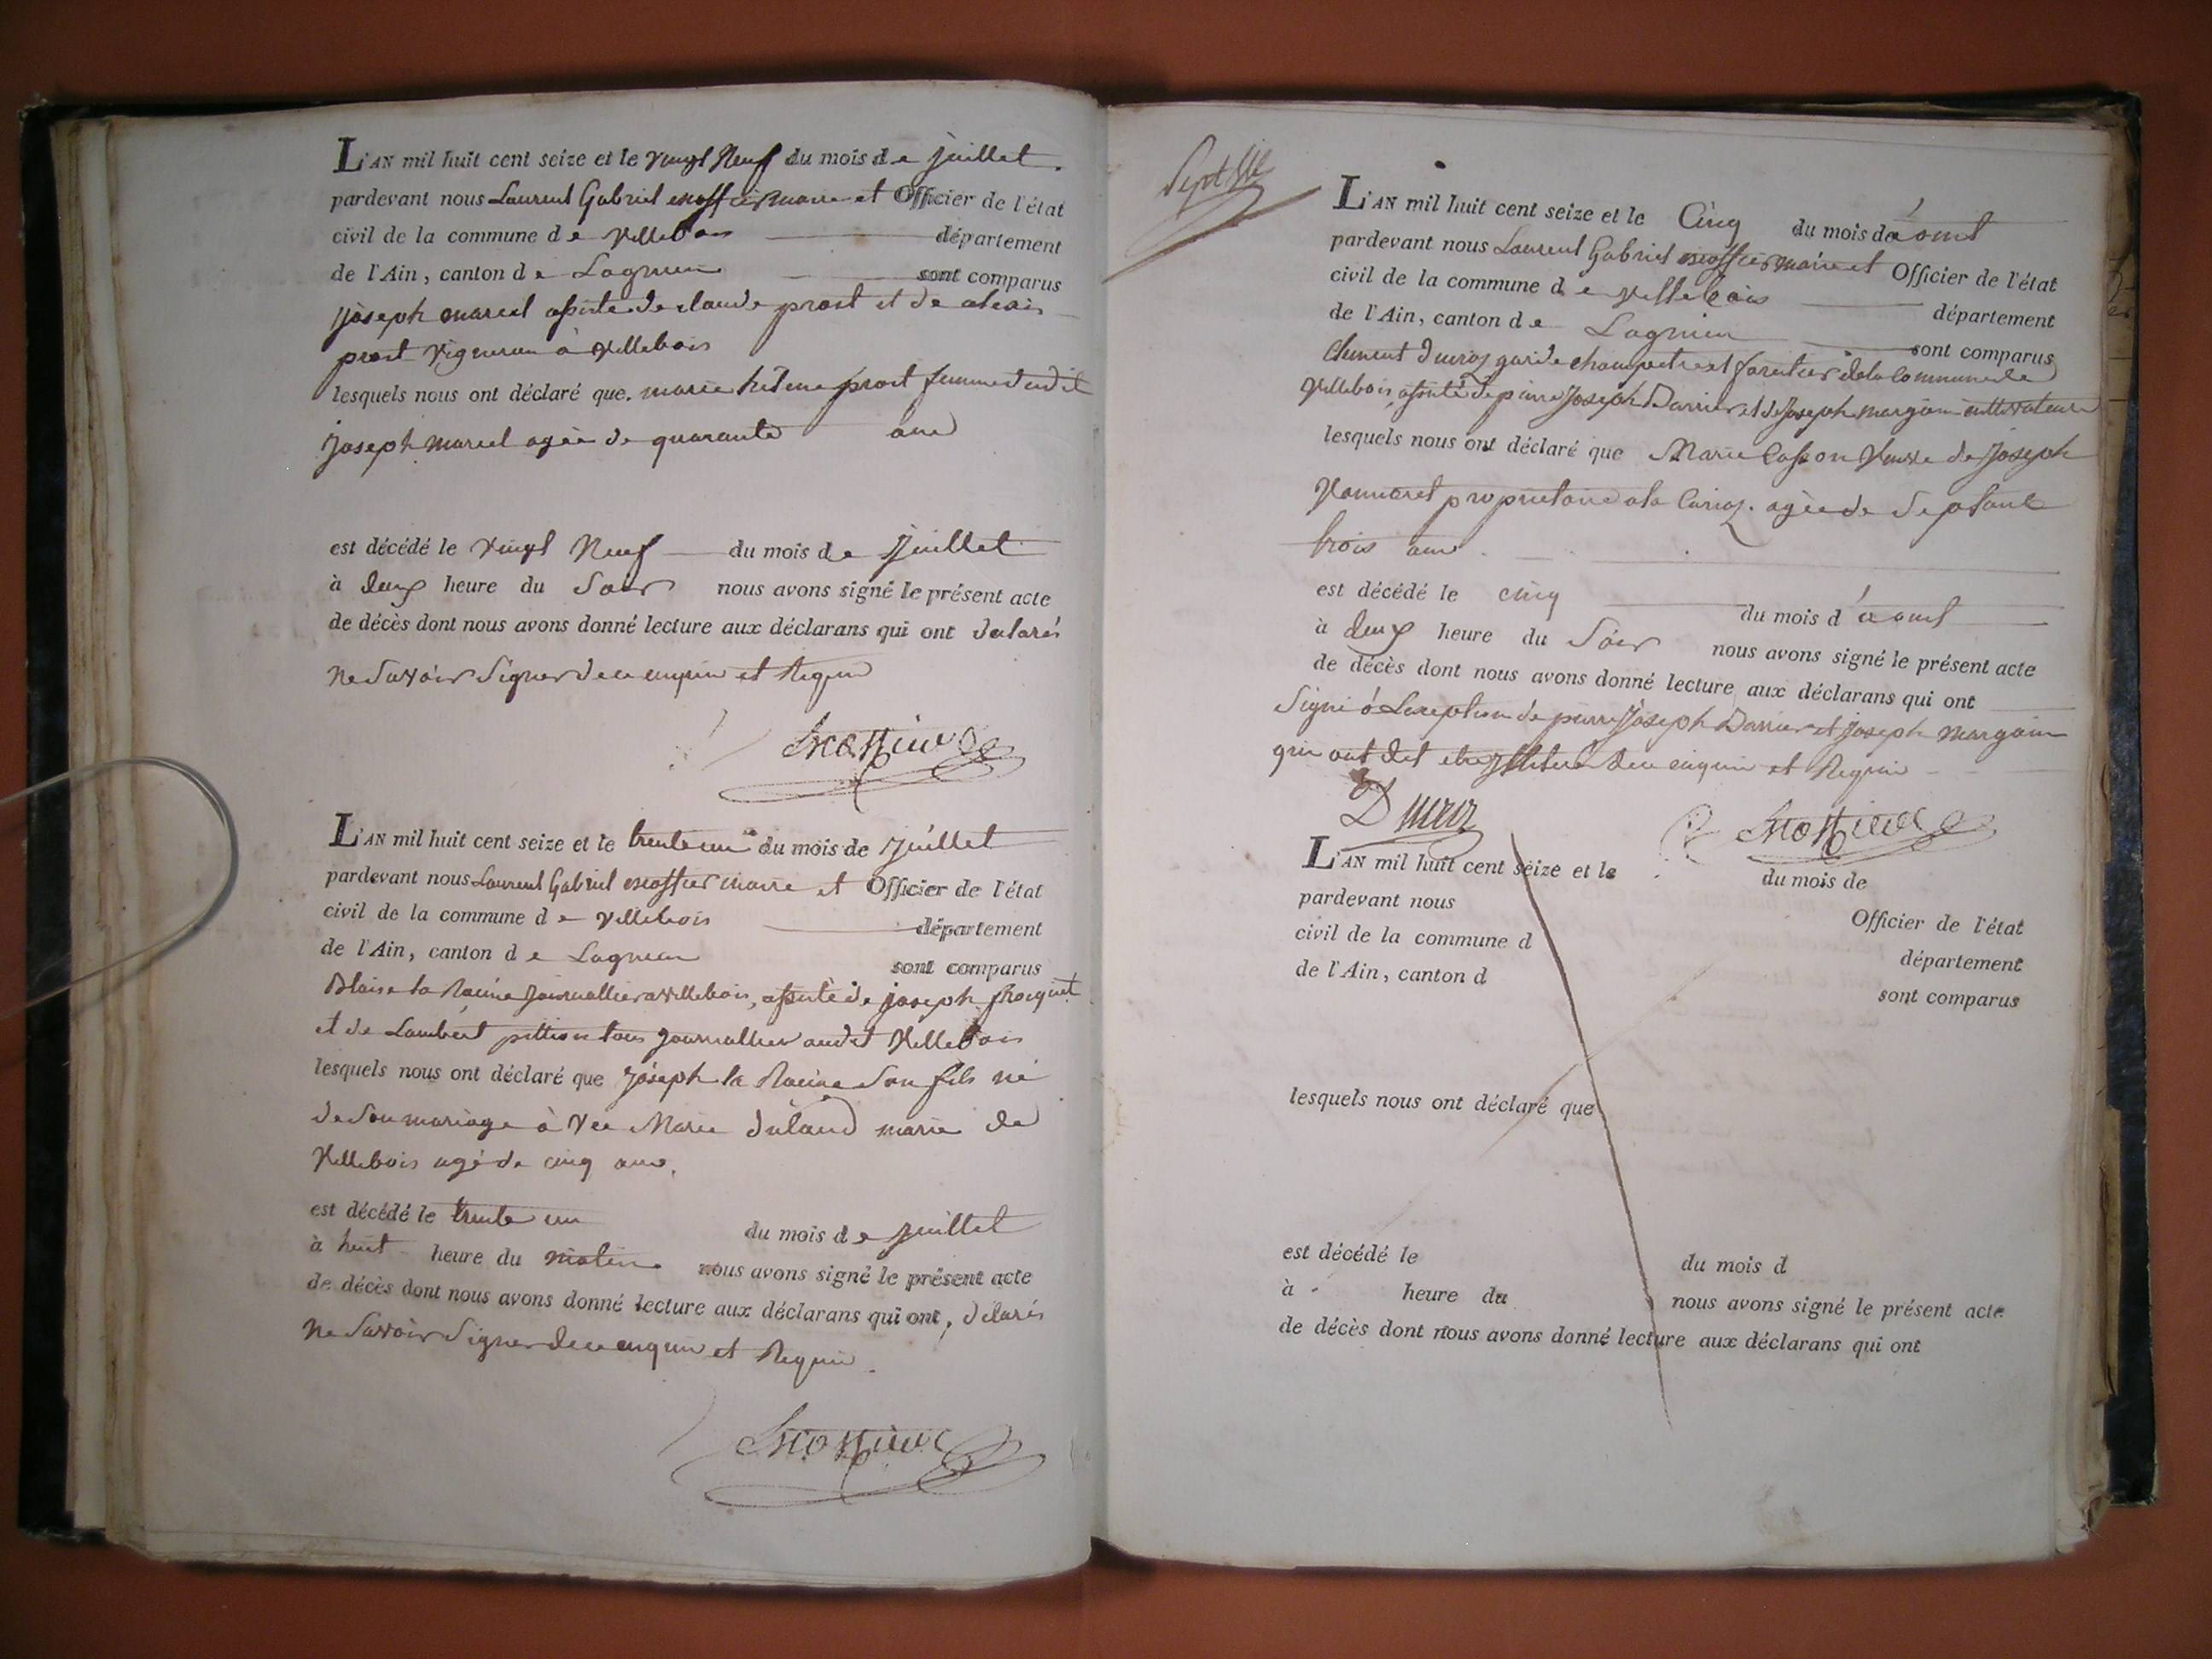 L'AN mil huit cent seize et le vingt Neuf du mois de juillet
pardevant nous Laurent Gabriel maire et Officier de l'état
civil de la commune de villebois département
de l'Ain, canton de Lagnieu sont comparus
joseph marcel assisté de claude prost et de
prost vigneron à villebois
lesquels nous ont déclaré que marie hélène prost femme dudit
joseph marcel agée de quarante ans
est décédé le vingt Neuf du mois de juillet
à deux heure du Soir nous avons signé le présent acte
de décès dont nous avons donné lecture aux déclarans qui ont
ne Savoir Signer de ce enquis et Requis
L'AN mil huit cent seize et le trente un du mois de juillet
pardevant nous Laurent Gabriel maire et Officier de l'état
civil de la commune de villebois département
de l'Ain, canton de Lagnieu sont comparus
Blaise la Racine journallier a villebois, assisté de joseph
et de Lambert pittion tous journallier audit villebois
lesquels nous ont déclaré que joseph la Racine Son fils né
de Son mariage à Marie de
villebois agé de cinq ans.
est décédé le trente un du mois de juillet
à huit heure du matin nous avons signé le présent acte
de décès dont nous avons donné lecture aux déclarans qui ont,
ne Savoir Signer de ce enquis et Requis.
L'AN mil huit cent seize et le Cinq du mois d'aout
pardevant nous Laurent Gabriel maire et Officier de l'état
civil de la commune de villebois département
de l'Ain, canton de Lagnieu sont comparus
Clement garde champetre et forestier de la Commune de
villebois, assisté de pierre joseph Darrier et de joseph margain
lesquels nous ont déclaré que Marie Casson veuve de joseph
agée de Septante
trois ans
est décédé le cinq du mois d'aout
à deux heure du Soir nous avons signé le présent acte
de décès dont nous avons donné lecture aux déclarans qui ont
Signé à de pierre joseph Darrier et joseph margain
qui ont dit etre de ce enquis et Requis
L'AN mil huit cent seize et le du mois de
pardevant nous Officier de l'état
civil de la commune d département
de l'Ain, canton d sont comparus
lesquels nous ont déclaré que
est décédé le du mois d
à heure du nous avons signé le présent acte
de décès dont nous avons donné lecture aux déclarans qui ont